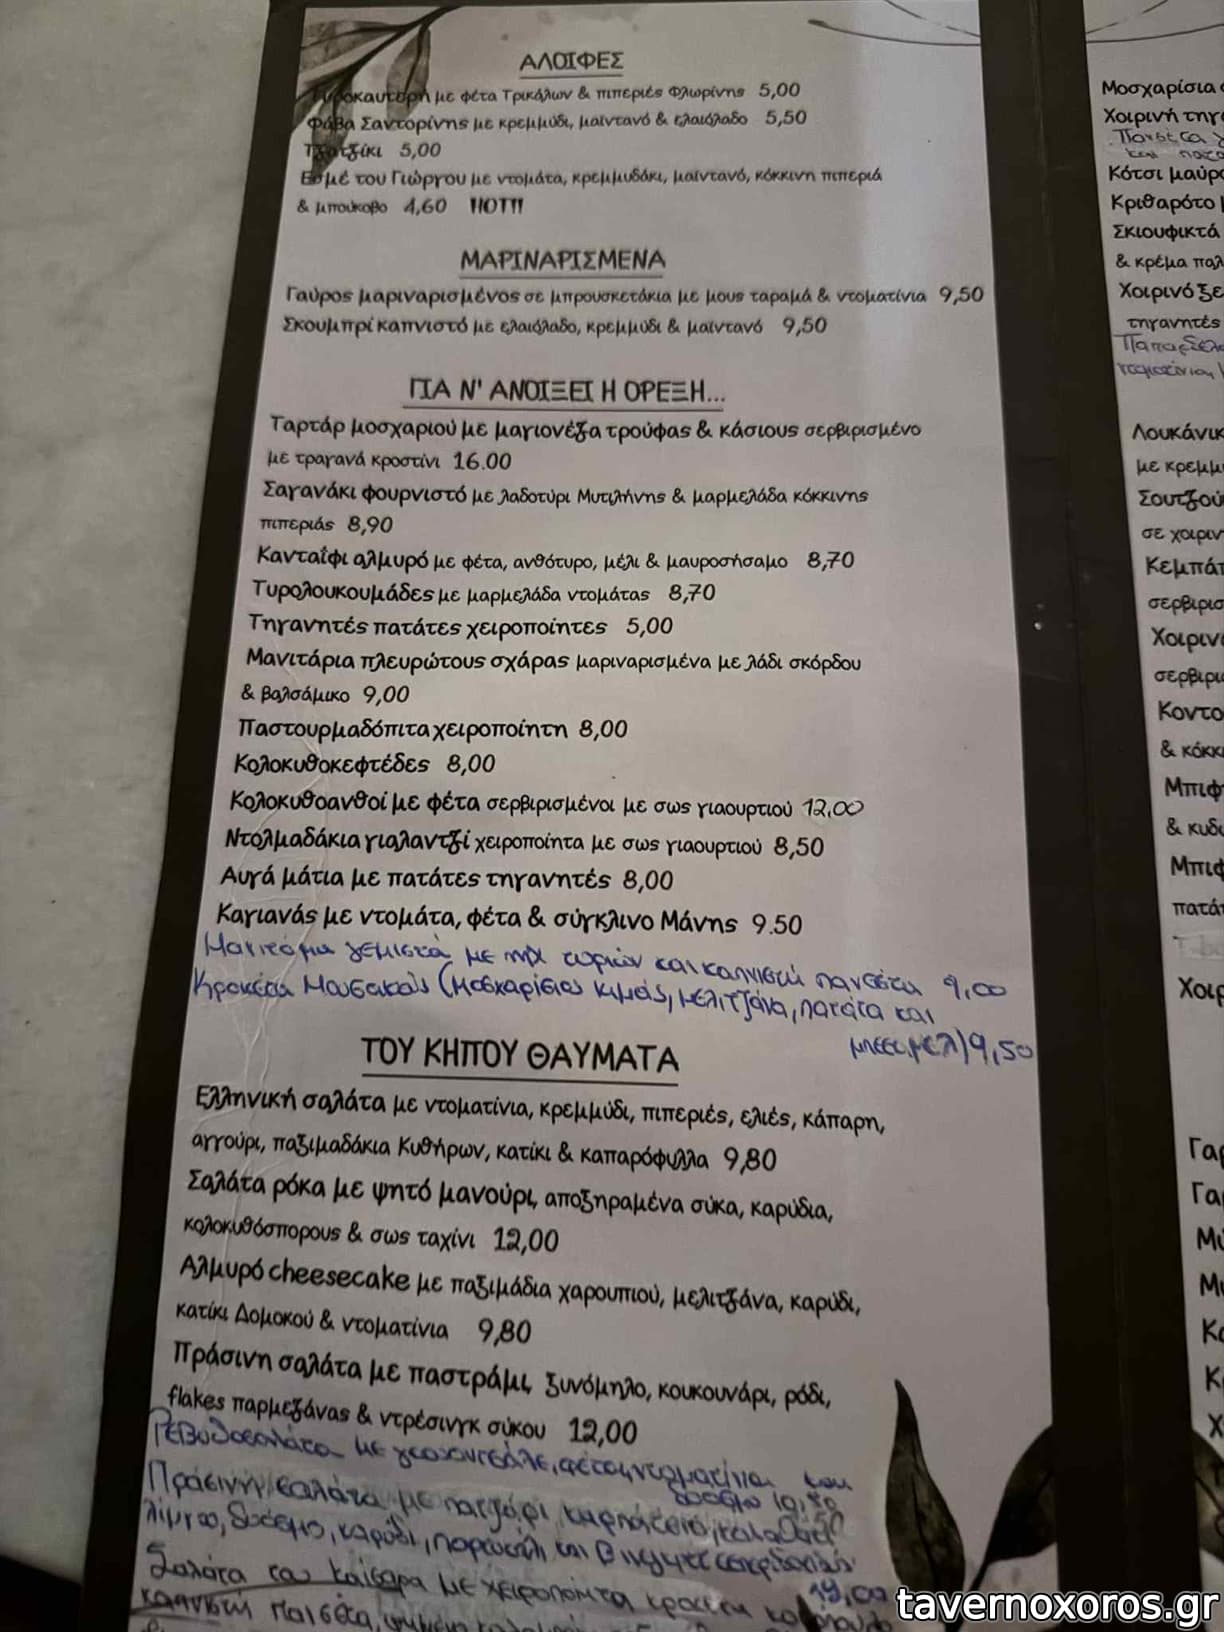 ΑΛΟΙΦΕΣ
με φέτα Τρικάλων & πιπεριές Φλωρίνης 5,00
Φάβα Σαντορίνης με κρεμμύδι, μαϊντανό & ελαιόλαδο 5,50
Τζατζίκι 5,00
Εσμέ του Γιώργου με ντομάτα, κρεμμυδάκι, μαϊντανό, κόκκινη πιπεριά
& μπούκοβο 4,60 !!HOT!!
ΜΑΡΙΝΑΡΙΣΜΕΝΑ
Γαύρος μαριναρισμένος σε μπρουσκετάκια με μους ταραμά & ντοματίνια 9,50
Σκουμπρί καπνιστό με ελαιόλαδο, κρεμμύδι & μαϊντανό 9,50
ΓΙΑ Ν' ΑΝΟΙΞΕΙ Η ΟΡΕΞΗ...
Ταρτάρ μοσχαριού με μαγιονέζα τρούφας & κάσιους σερβιρισμένο
με τραγανά κροστίνι 16.00
Σαγανάκι φουρνιστό με λαδοτύρι Μυτιλήνης & μαρμελάδα κόκκινης
πιπεριάς 8,90
Κανταΐφι αλμυρό με φέτα, ανθότυρο, μέλι & μαυροσήσαμο 8,70
Τυρολουκουμάδες με μαρμελάδα ντομάτας 8,70
Τηγανητές πατάτες χειροποίητες 5,00
Μανιτάρια πλευρώτους σχάρας μαριναρισμένα με λάδι σκόρδου
& βαλσάμικο 9,00
Παστουρμαδόπιτα χειροποίητη 8,00
Κολοκυθοκεφτέδες 8,00
Κολοκυθοανθοί με φέτα σερβιρισμένοι με σως γιαουρτιού 12,00
Ντολμαδάκια γιαλαντζί χειροποίητα με σως γιαουρτιού 8,50
Αυγά μάτια με πατάτες τηγανητές 8,00
Καγιανάς με ντομάτα, φέτα & σύγκλινο Μάνης 9.50
Μανιτάρια γεμιστά με μιξ τυριών και καπνιστή πανσέτα 9,00
Κροκέτα Μουσακάς (μοσχαρίσιος κιμάς, μελιτζάνα, πατάτα και
μπεσαμελ) 9,50
ΤΟΥ ΚΗΠΟΥ ΘΑΥΜΑΤΑ
Ελληνική σαλάτα με ντοματίνια, κρεμμύδι, πιπεριές, ελιές, κάπαρη,
αγγούρι, παξιμαδάκια Κυθήρων, κατίκι & καπαρόφυλλα 9,80
Σαλάτα ρόκα με ψητό μανούρι, αποξηραμένα σύκα, καρύδια,
κολοκυθόσπορους & σως ταχίνι 12,00
Αλμυρό cheesecake με παξιμάδια χαρουπιού, μελιτζάνα, καρύδι,
κατίκι Δομοκού & ντοματίνια 9,80
Πράσινη σαλάτα με παστράμι, ξυνόμηλο, κουκουνάρι, ρόδι,
flakes παρμεζάνας & ντρέσινγκ σύκου 12,00
Ρεβυθοσαλάτα με φέτα, ντοματίνια και
δυόσμο
Πράσινη σαλάτα με παντζάρι
δυόσμο, καρύδι, πορτοκάλι και
Σαλάτα του Καίσαρα με χειροποίητα
14,00
καπνιστή πανσέτα,
Μοσχαρίσια
Χοιρινή
Πανσέτα
και
Κότσι
Κριθαρότο
Σκιουφικτά
& κρέμα
Χοιρινό
τηγανητές
Λουκάνικ
με
σε
& κόκκ
tavernoxoros.gr